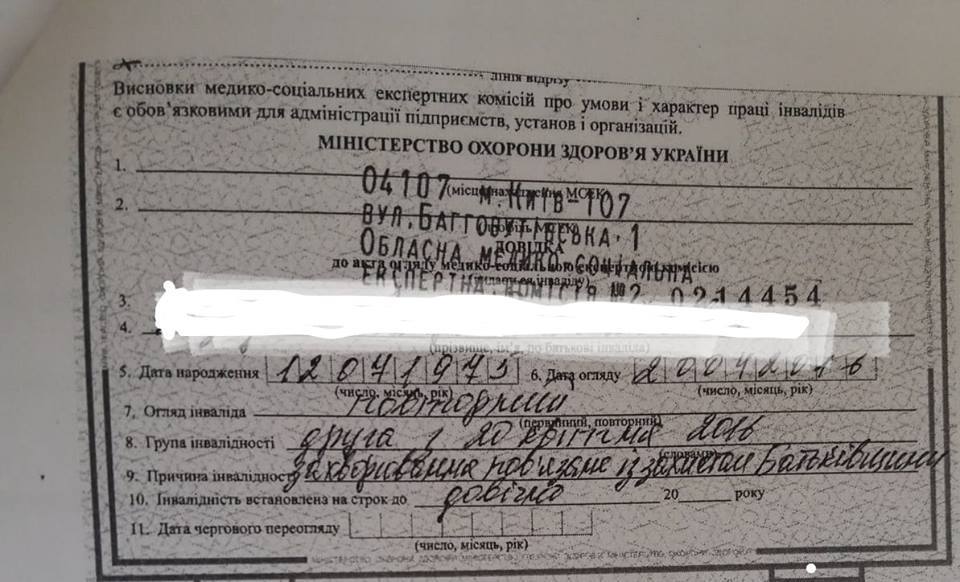 лінія відрізу
Висновки медико-соціальних експертних комісій про умови і характер праці інвалідів
є обов'язковими для адміністрації підприємств, установ і організацій.
МІНІСТЕРСТВО ОХОРОНИ ЗДОРОВ'Я УКРАЇНИ
1.
04107 м.Київ-107
(місцезнаходження МСЕК)
2.
вул.Багговутівська,1
ДОВІДКА
Обласна медико-соціальна
до акта огляду медико-соціальною експертною комісією
експертна комісія №2 0214454
3.
4.
(прізвище, ім'я, по батькові інваліда)
5. Дата народження 12071975 6. Дата огляду 20042016
(число, місяць, рік) (число, місяць, рік)
7. Огляд інваліда повторний
(первинний, повторний)
8. Група інвалідності друга з 20 квітня 2016
(словами)
9. Причина інвалідності захворювання пов'язане із захистом Батьківщини
10. Інвалідність встановлена на строк до довічно 20 року
11. Дата чергового переогляду
(число, місяць, рік)